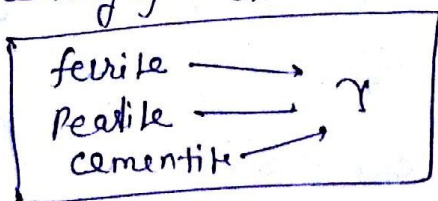 ferrite
Pearlite
γ
cementite